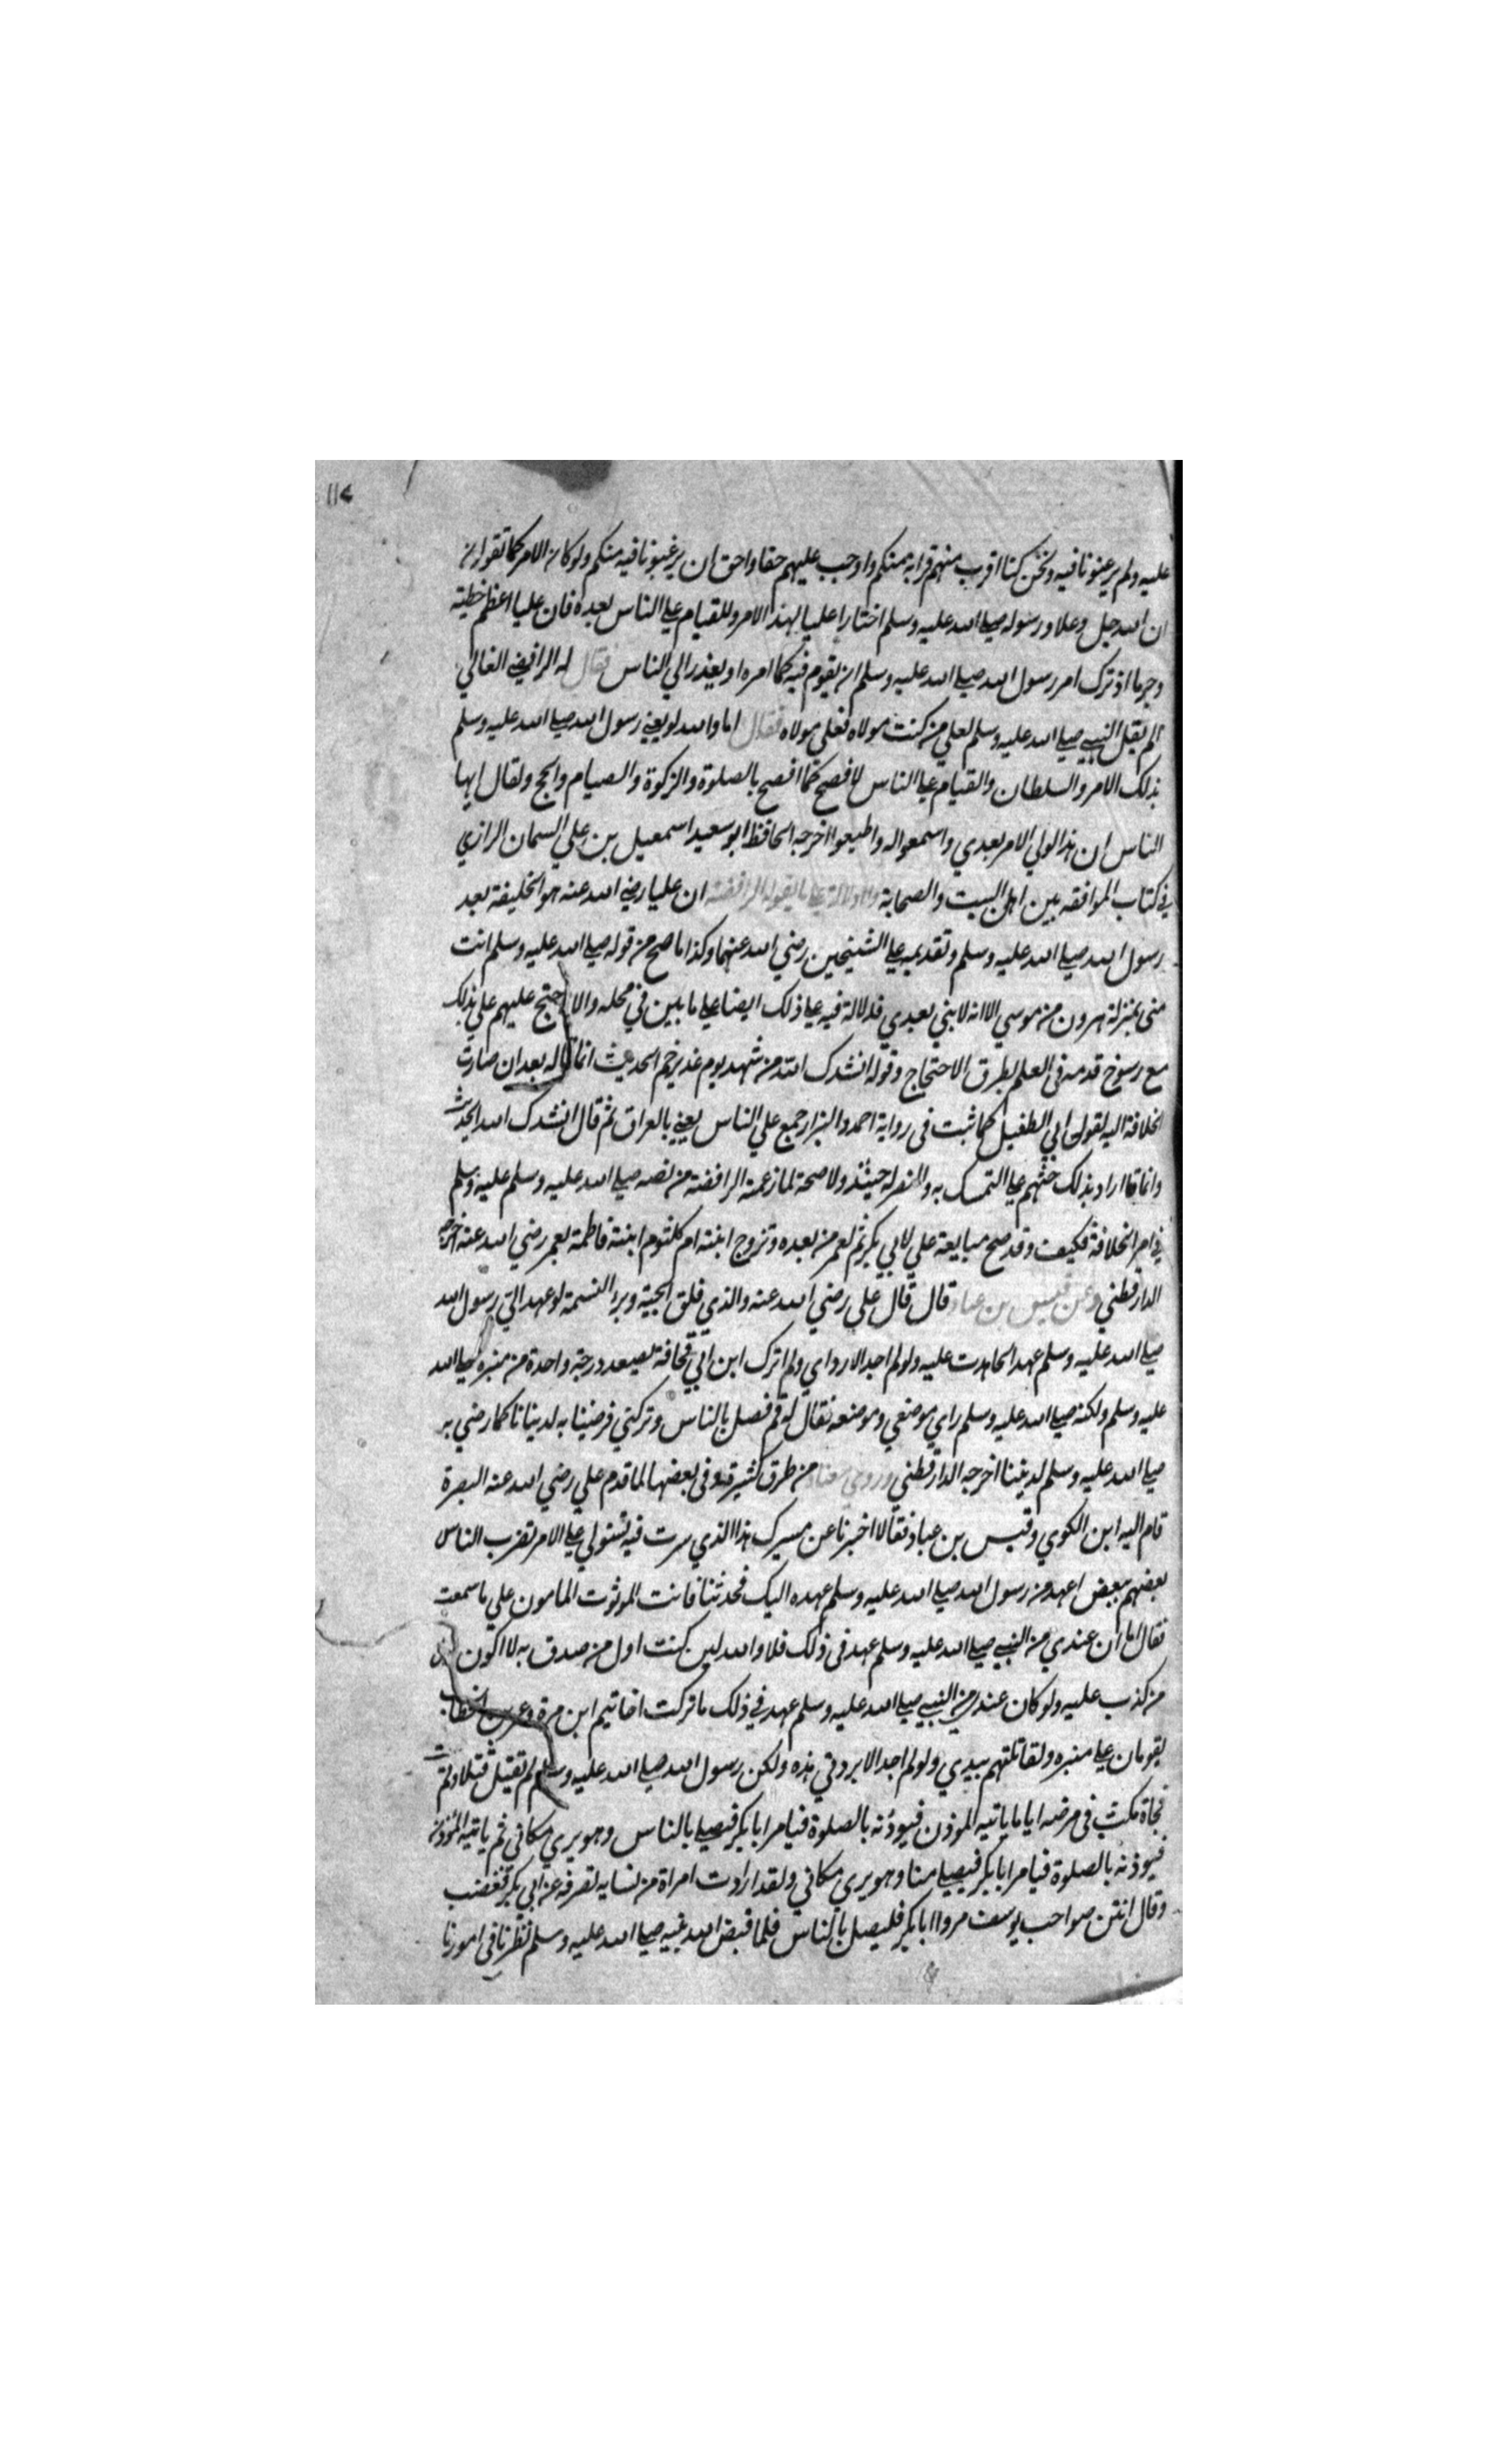 ١١٧
عليه ولم يرغبونا فيه ونحن كنا اقرب منهم قرابة منكم واوجب عليهم حقا واحق ان يرغبونا فيه منكم ولو كان الامر كما تقولون
ان الله جل وعلا ورسوله صلى الله عليه وسلم اختارا عليا لهذا الامر وللقيام على الناس بعده فان عليا اعظم خطية
وجرما اذ ترك امر رسول الله صلى الله عليه وسلم ان يقوم فيه كما امره او يعذر الي الناس فقال له الرافضي الغالي
الم يقل النبي صلى الله عليه وسلم لعلي من كنت مولاه فعلي مولاه فقال اما والله لو يعني رسول الله صلى الله عليه وسلم
بذلك الامر والسلطان والقيام على الناس لافصح كما افصح بالصلوة والزكوة والصيام والحج ولقال ايها
الناس ان هذا لولي الامر بعدي واسمعوا له واطيعوا اخرجه الحافظ ابو سعيد اسمعيل بن علي السمان الرازي
في كتاب الموافقه بين اهل البيت والصحابة ولا دلالة على ما يقوله الرافضة ان عليا رضي الله عنه هو الخليفة بعد
رسول الله صلى الله عليه وسلم وتقديمه على الشيخين رضي الله عنهما وكذا ما صح من قوله صلى الله عليه وسلم انت
مني بمنزلة هرون من موسي الا انه لا نبي بعدي فلا دلالة فيه على ذلك ايضا على ما بين في محله والا احتج عليهم علي بذلك
مع رسوخ قدمه في العلم بطرق الاحتجاج وقوله انشدك الله من شهد يوم غدير خم الحديث انما قاله بعد ان صارت
الخلافة اليه لقول ابي الطفيل كما ثبت في رواية احمد والبزار جمع علي الناس يعني بالعراق ثم قال انشدك الله الحديث
وانما اراد بذلك حثهم على التمسك به والنصر له حينئذ ولا صحة لما زعمته الرافضة من نصه صلى الله عليه وسلم عليه وسلم
في امر الخلافة فكيف وقد صح مبايعة علي لابي بكر ثم لعمر من بعده وتزوج ابنته ام كلثوم ابنة فاطمة بعمر رضي الله عنه اخرجه
الدارقطني وعن قيس بن عباد قال قال علي رضي الله عنه والذي فلق الحبة وبرا النسمة لو عهد الي رسول الله
صلى الله عليه وسلم عهدا لجاهدت عليه ولو لم اجد الا رداي ولم اترك ابن ابي قحافة يصعد درجة واحدة من منبره صلى الله
عليه وسلم ولكنه صلى الله عليه وسلم راي موضعي وموضعه فقال له قم فصل بالناس وتركني فرضينا به لدنيانا كما رضي به
صلى الله عليه وسلم لديننا اخرجه الدارقطني وروي معناه من طرق كثيرة وفي بعضها لما قدم علي رضي الله عنه البصرة
قام اليه ابن الكوي وقيس بن عباد فقالا اخبرنا عن مسيرك هذا الذي سرت فيه تستولي على الامر تضرب الناس
بعضهم ببعض اعهد من رسول الله صلى الله عليه وسلم عهده اليك فحدثنا فانت الموثوق المامون علي ما سمعت
فقال اما ان عندي من النبي صلى الله عليه وسلم عهد في ذلك فلا والله لين كنت اول من صدق به لا اكون اول
من كذب عليه ولو كان عندي من النبي صلى الله عليه وسلم عهد في ذلك ما تركت اخا تيم ابن مرة وعمر بن الخطاب
يقومان على منبره ولقاتلتهم بيدي ولو لم اجد الا بردتي هذه ولكن رسول الله صلى الله عليه وسلم لم يقتل قتلا ولم يمت
فجاة مكث في مرضه اياما ياتيه الموذن فيوذنه بالصلوة فيامر ابا بكر فيصلي بالناس وهو يري مكاني ثم ياتيه الموذن
فيوذنه بالصلوة فيامر ابا بكر فيصلي منا وهو يري مكاني ولقد ارادت امراة من نسايه تصرفه عن ابي بكر فغضب
وقال انتن صواحب يوسف مروا ابا بكر فليصل بالناس فلما قبض الله نبيه صلى الله عليه وسلم نظرنا في امورنا